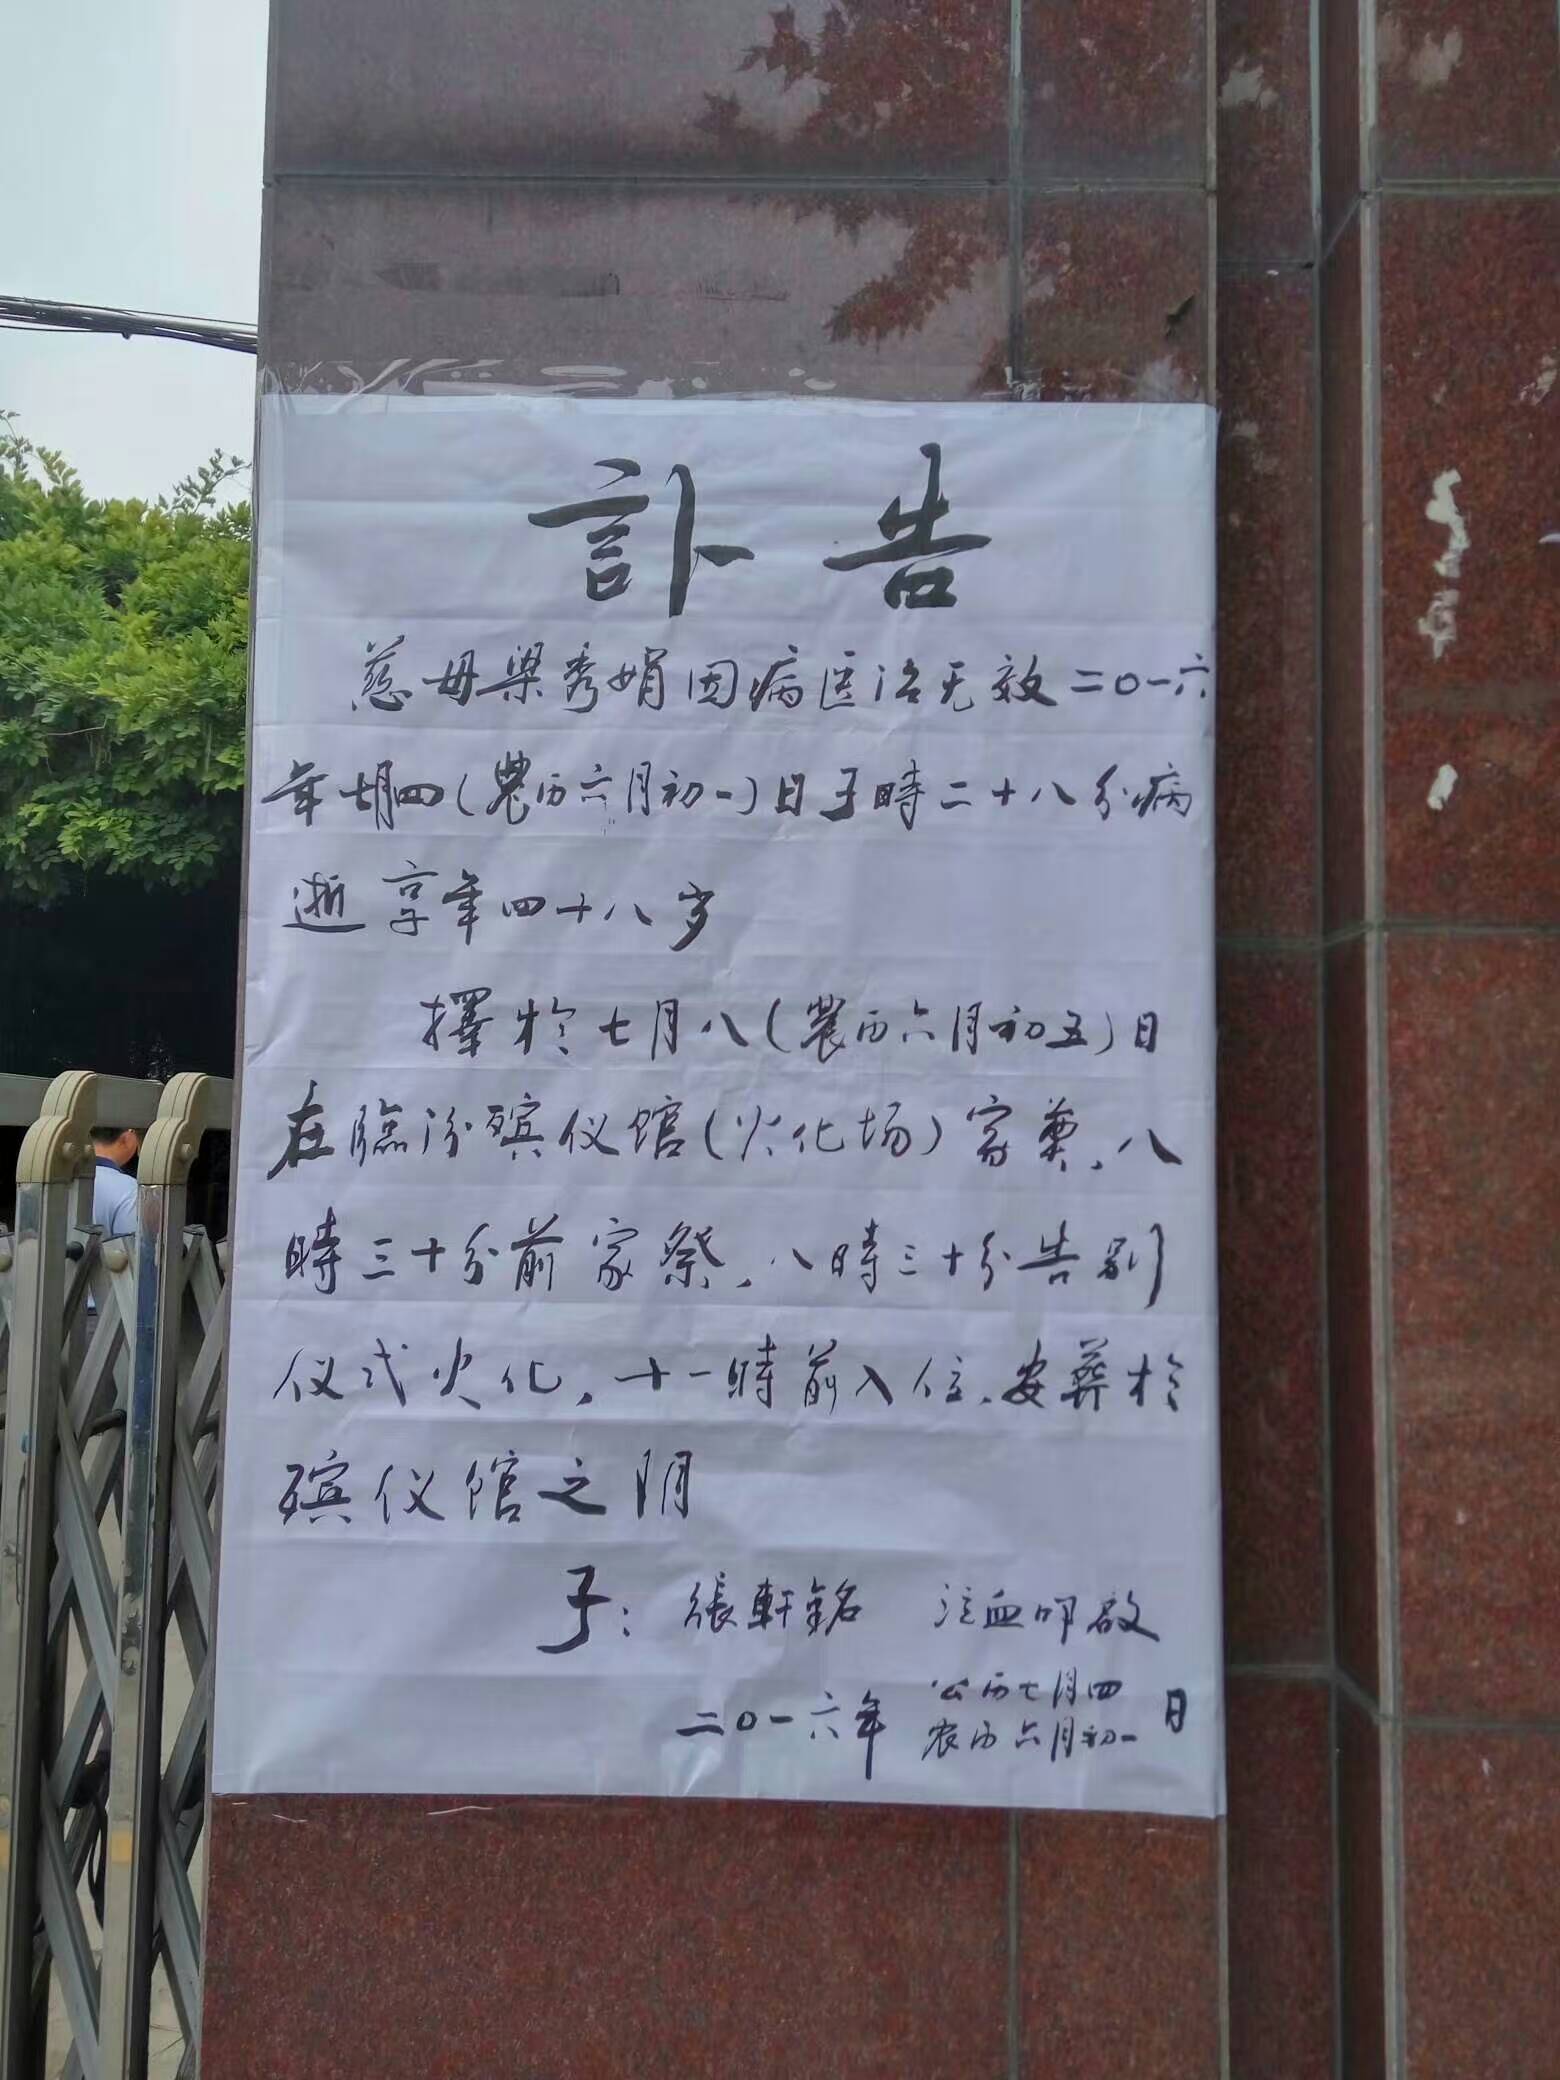 訃告
慈母梁秀娟因病医治无效二〇一六
年七月四(農历六月初一)日子時二十八分病
逝享年四十八岁
擇於七月八(農历六月初五)日
在臨汾殡仪馆(火化场)家奠、八
時三十分前家祭、八時三十分告别
仪式火化、十一時前入位、安葬於
殡仪馆之阴
子：張軒銘 泣血叩啟
二〇一六年 公历七月四 日
农历六月初一